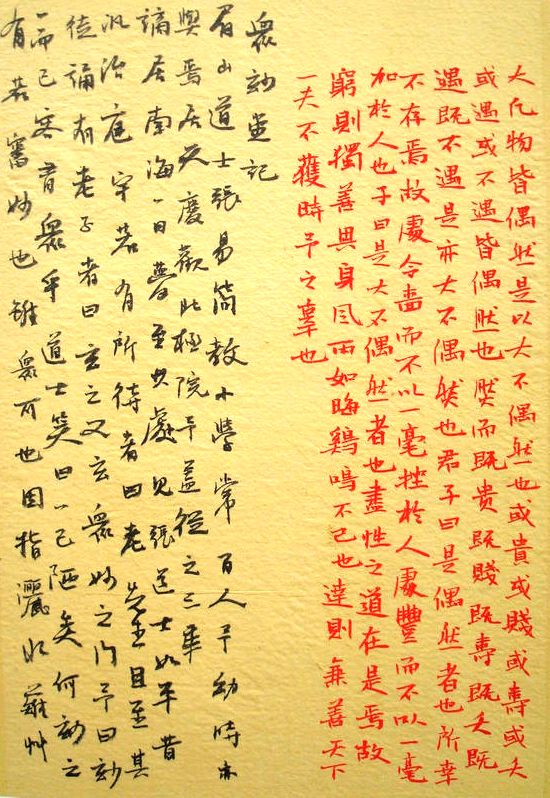 大凡物皆偶然是以大不偶然也或貴或賤或壽或夭
或遇或不遇皆偶然也然而既貴既賤既壽既夭既
遇既不遇是亦大不偶然也君子曰是偶然者也所幸
不存焉故處令嗇而不以一毫挫於人處豐而不以一毫
加於人也子曰是大不偶然者也盡性之道在是焉故
窮則獨善其身風雨如晦鷄鳴不已也達則兼善天下
一夫不獲時予之辜也
眾妙堂記
眉山道士張易簡教小學常百人予幼時亦
與焉居天慶觀北極院予蓋從之三年
謫居南海一日夢至其處見張道士如平昔
汎治庭宇若有所待者曰老先生且至其
徒誦有老子者曰玄之又玄眾妙之門予曰妙
一而已容有眾乎道士笑曰一已陋矣何妙之
有若審妙也雖眾可也因指灑水薙艸